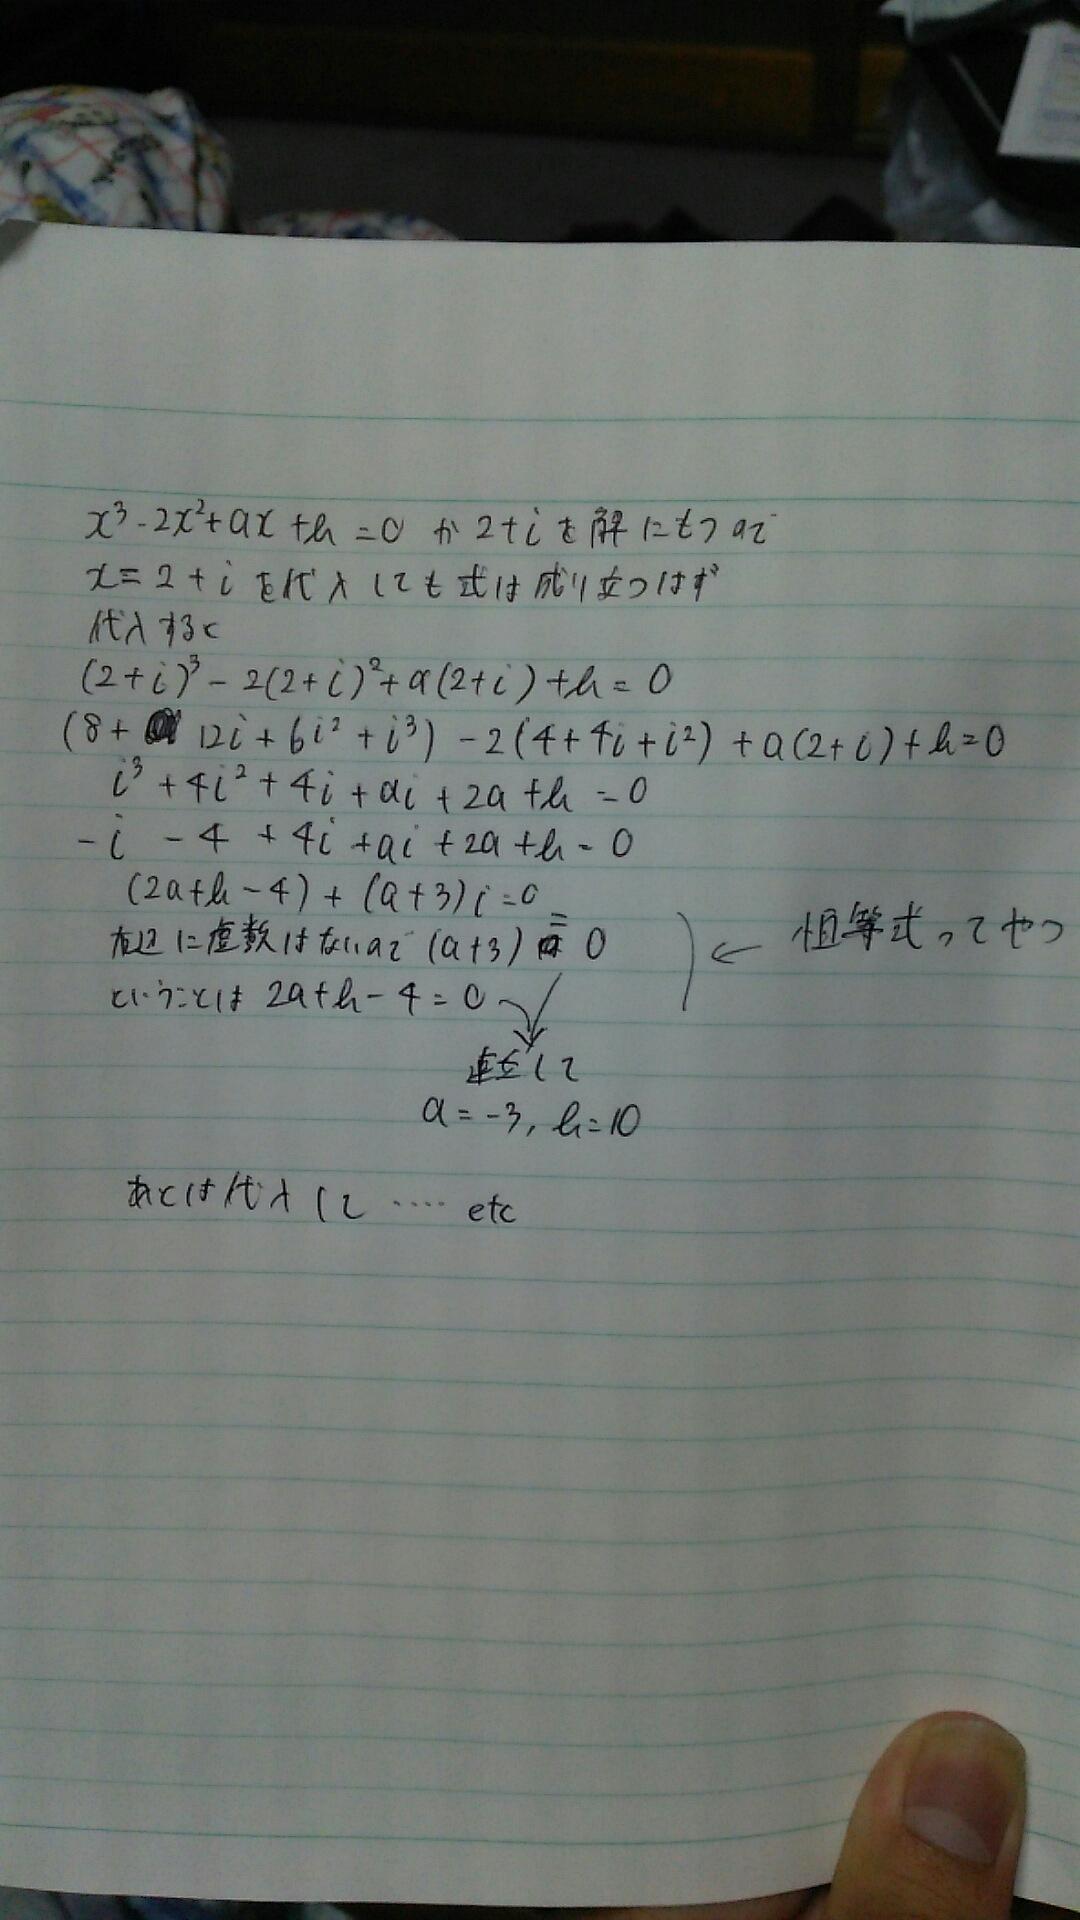 x³-2x²+ax+b=0 が 2+i を解にもつので
x=2+i を代入しても式は成り立つはず
代入すると
(2+i)³-2(2+i)²+a(2+i)+b=0
(8+12i+6i²+i³)-2(4+4i+i²)+a(2+i)+b=0
i³+4i²+4i+ai+2a+b=0
-i-4+4i+ai+2a+b=0
(2a+b-4)+(a+3)i=0
右辺に虚数はないので (a+3)=0
ということは 2a+b-4=0
← 恒等式ってやつ
連立して
a=-3, b=10
あとは代入して ‥‥ etc